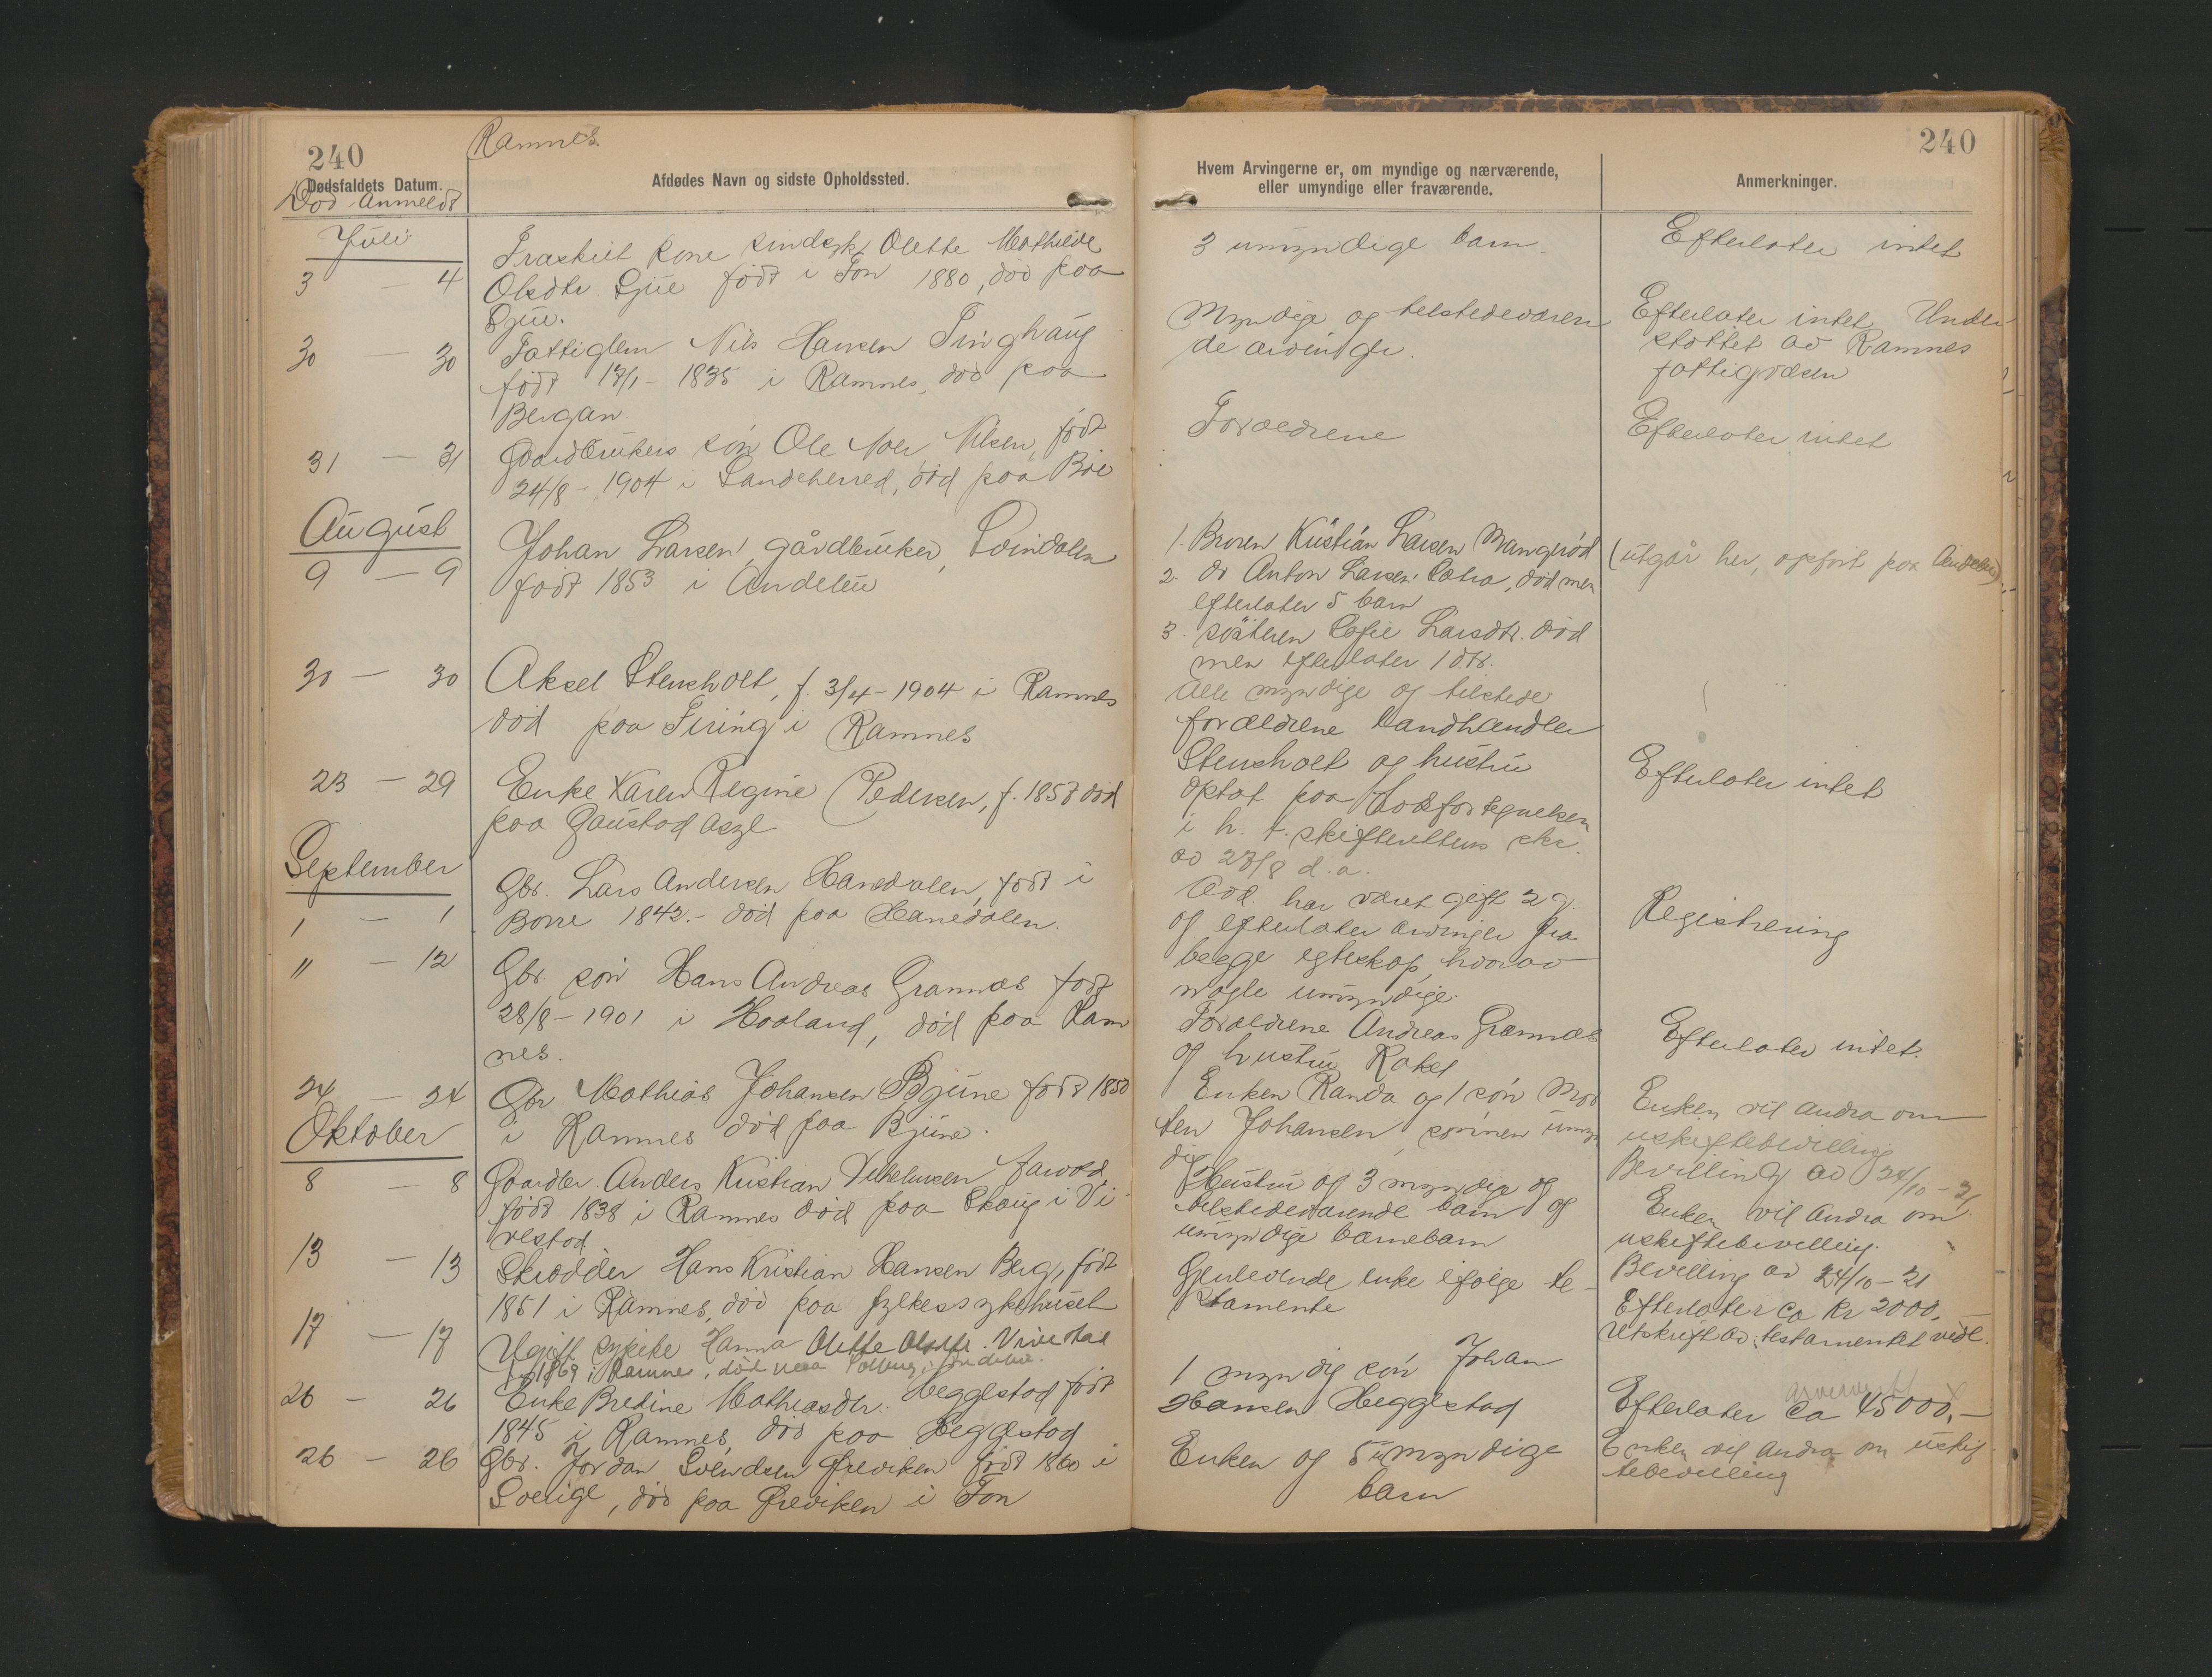 240
Ramnes
Dødsfaldets Datum.
Død Anmeldt
Afdødes Navn og sidste Opholdssted.
Juli
3 — 4
Fraskilt kone sindssyk Olette Mathilde
Olsdtr. Gjue født i Fon 1880, død paa
Gjue.
30 — 30
Fattiglem Nils Hansen Tinghaug
født 17/1 - 1835 i Ramnes, død paa
Bergan.
31 — 31
Gaardbrukers søn Ole Nilsen, født
24/8 - 1904 i Sandeherred, død paa Bøe
August
9 — 9
Johan Larsen, gårdbruker, Svindalen
født 1853 i Andebu
30 — 30
Aksel Stensholt, f. 3/4 - 1904 i Ramnes
død paa Firing i Ramnes
23 — 29
Enke Karen Regine Pedersen, f. 1857 død
paa Gaustad asyl
September
1 — 1
Gbr. Lars Andersen Hanedalen, født i
Borre 1842. - død paa Hanedalen.
" — 12
Gbr. søn Hans Andreas Grannæs født
28/8 - 1901 i Hvaland, død paa Ram
nes.
24 — 24
Gbr. Mathias Johansen Bjune født 1850
i Ramnes død paa Bjune.
Oktober
8 — 8
Gaardbr. Anders Kristian Vilhelmsen
født 1838 i Ramnes død paa Skaug i Vi-
vestad
13 — 13
Skrædder Hans Kristian Hansen Berg, født
1851 i Ramnes, død paa fylkessykehuset
17 — 17
Ugift pike Hanna Olette Olsdtr. Vivestad
f. 1869 i Ramnes, død Solberg i Andebu.
26 — 26
Enke Bredine Mathiasdtr. Heggestad født
1845 i Ramnes, død paa Heggestad
26 — 26
Gbr. Jordan Svendsen Greviken født 1860 i
Sverige, død paa Greviken i Fon
240
Hvem Arvingerne er, om myndige og nærværende,
eller umyndige eller fraværende.
Anmerkninger.
3 umyndige barn.
Efterlater intet
Myndige og tilstedeværen
de arvinger.
Efterlater intet. Under
støttet av Ramnes
fattigvæsen
Forældrene
Efterlater intet
1. Broren Kristian Larsen Mangerød
2. do Anton Larsen Sætra, død men
efterlater 5 barn
3. søsteren Sofie Larsdtr. død
men efterlater 1 dtr.
Alle myndige og tilstede
(utgår her, opført paa Andebu)
forældrene landhandler
Stensholt og hustru
Efterlater intet
optat paa dødsfortegnelsen
i h. t. skifterettens skr.
av 27/8 d. a.
Avd. har været gift 2 g.
og efterlater arvinger fra
begge egteskap, hvorav
nogle umyndige.
Registrering
Forældrene Andreas Grannæs
og hustru Rakel
Efterlater intet.
Enken Randa og 1 søn Mor
ten Johansen, sønnen umyn
dig
Enken vil andra om
uskiftebevilling
Bevilling av 24/10 - 21
Hustru og 3 myndige og
tilstedeværende barn og
umyndige barnebarn
Enken vil andra om
uskiftebevilling.
Bevilling av 24/10 - 21
Gjenlevende enke ifølge te-
stamente
Efterlater ca kr 2000.
Utskrift av testamentet vedl.
1 myndig søn Johan
Hansen Heggestad
Efterlater ca 45000,-
Enken og 5 umyndige
barn
Enken vil andra om uskif
tebevilling